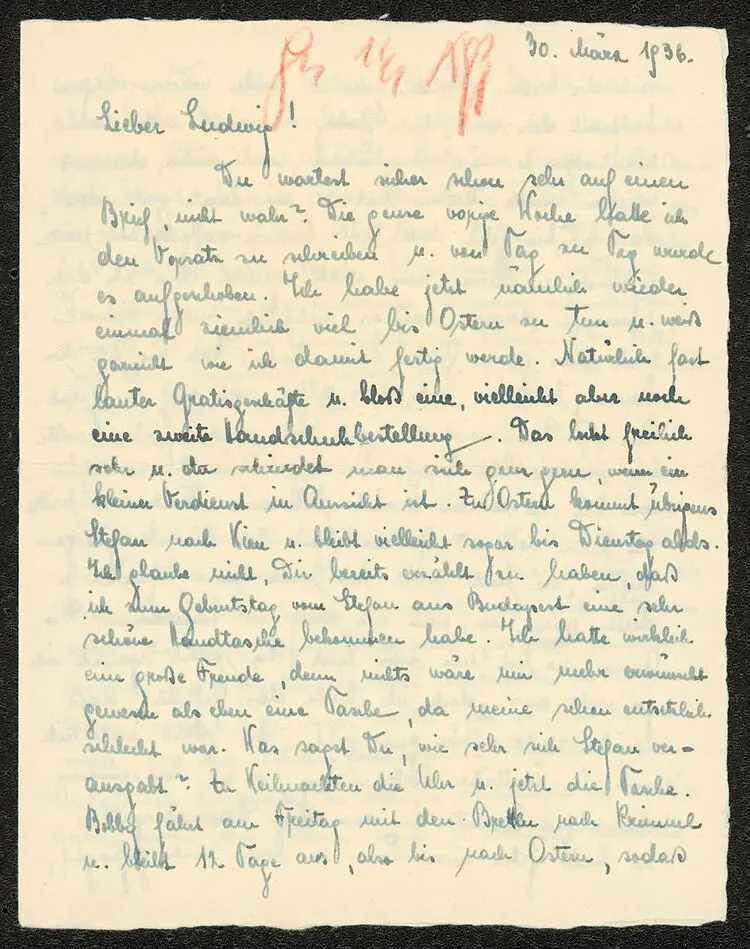 30. März 1936.
Lieber Ludwig!
Du wartest sicher schon sehr auf einen
Brief, nicht wahr? Die ganze vorige Woche hatte ich
den Vorsatz zu schreiben u. von Tag zu Tag wurde
es aufgeschoben. Ich habe jetzt nämlich wieder
einmal ziemlich viel bis Ostern zu tun u. weiß
garnicht wie ich damit fertig werde. Natürlich fast
lauter Gratisgeschäfte u. bloß eine, vielleicht aber noch
eine zweite Handschuhbestellung. Das lockt freilich
sehr u. da schindet man sich ganz gern, wenn ein
kleiner Verdienst in Aussicht ist. Zu Ostern kommt übrigens
Stefan nach Wien u. bleibt vielleicht sogar bis Dienstag abds.
Ich glaube nicht, Dir bereits erzählt zu haben, daß
ich zum Geburtstag vom Stefan aus Budapest eine sehr
schöne Handtasche bekommen habe. Ich hatte wirklich
eine große Freude, denn nichts wäre mir mehr erwünscht
gewesen als eben eine Tasche, da meine schon entsetzlich
schlecht war. Was sagst Du, wie sehr sich Stefan ver=
ausgabt? Zu Weihnachten die Uhr u. jetzt die Tasche.
Bobby fährt am Freitag mit den Bretteln nach Krimml
u. bleibt 12 Tage aus, also bis nach Ostern, sodaß